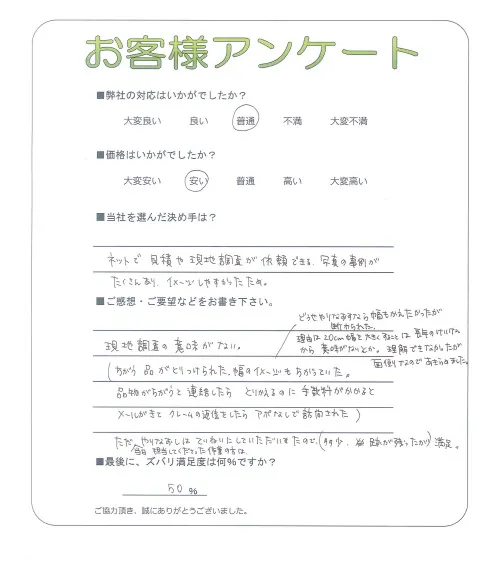 お客様アンケート
■弊社の対応はいかがでしたか？
大変良い 良い 普通 不満 大変不満
■価格はいかがでしたか？
大変安い 安い 普通 高い 大変高い
■当社を選んだ決め手は？
ネットで 見積や 現地調査が 依頼できる、写真の事例が
たくさんあり、イメージしやすかったため。
■ご感想・ご要望などをお書き下さい。
どうせやりなおすなら幅もかえたかったが
断わられた。
理由は20cm幅を大きくすることは 長年のけいけん
から 意味がないとか。理解できなかったが
面倒なのであきらめました。
現地調査の意味がない。
(ちがう品がとりつけられた。幅のイメージもちがっていた。
品物がちがうと連絡したら とりかえるのに手数料がかかると
メールがきて クレームの返信をしたら アポなしで訪問された)
ただ、やりなおしは ていねいにしていただいたので、(多少、 跡が残ったが) 満足。
今回 担当してくださった作業の方は、
■最後に、ズバリ満足度は何%ですか？
50 %
ご協力頂き、誠にありがとうございました。